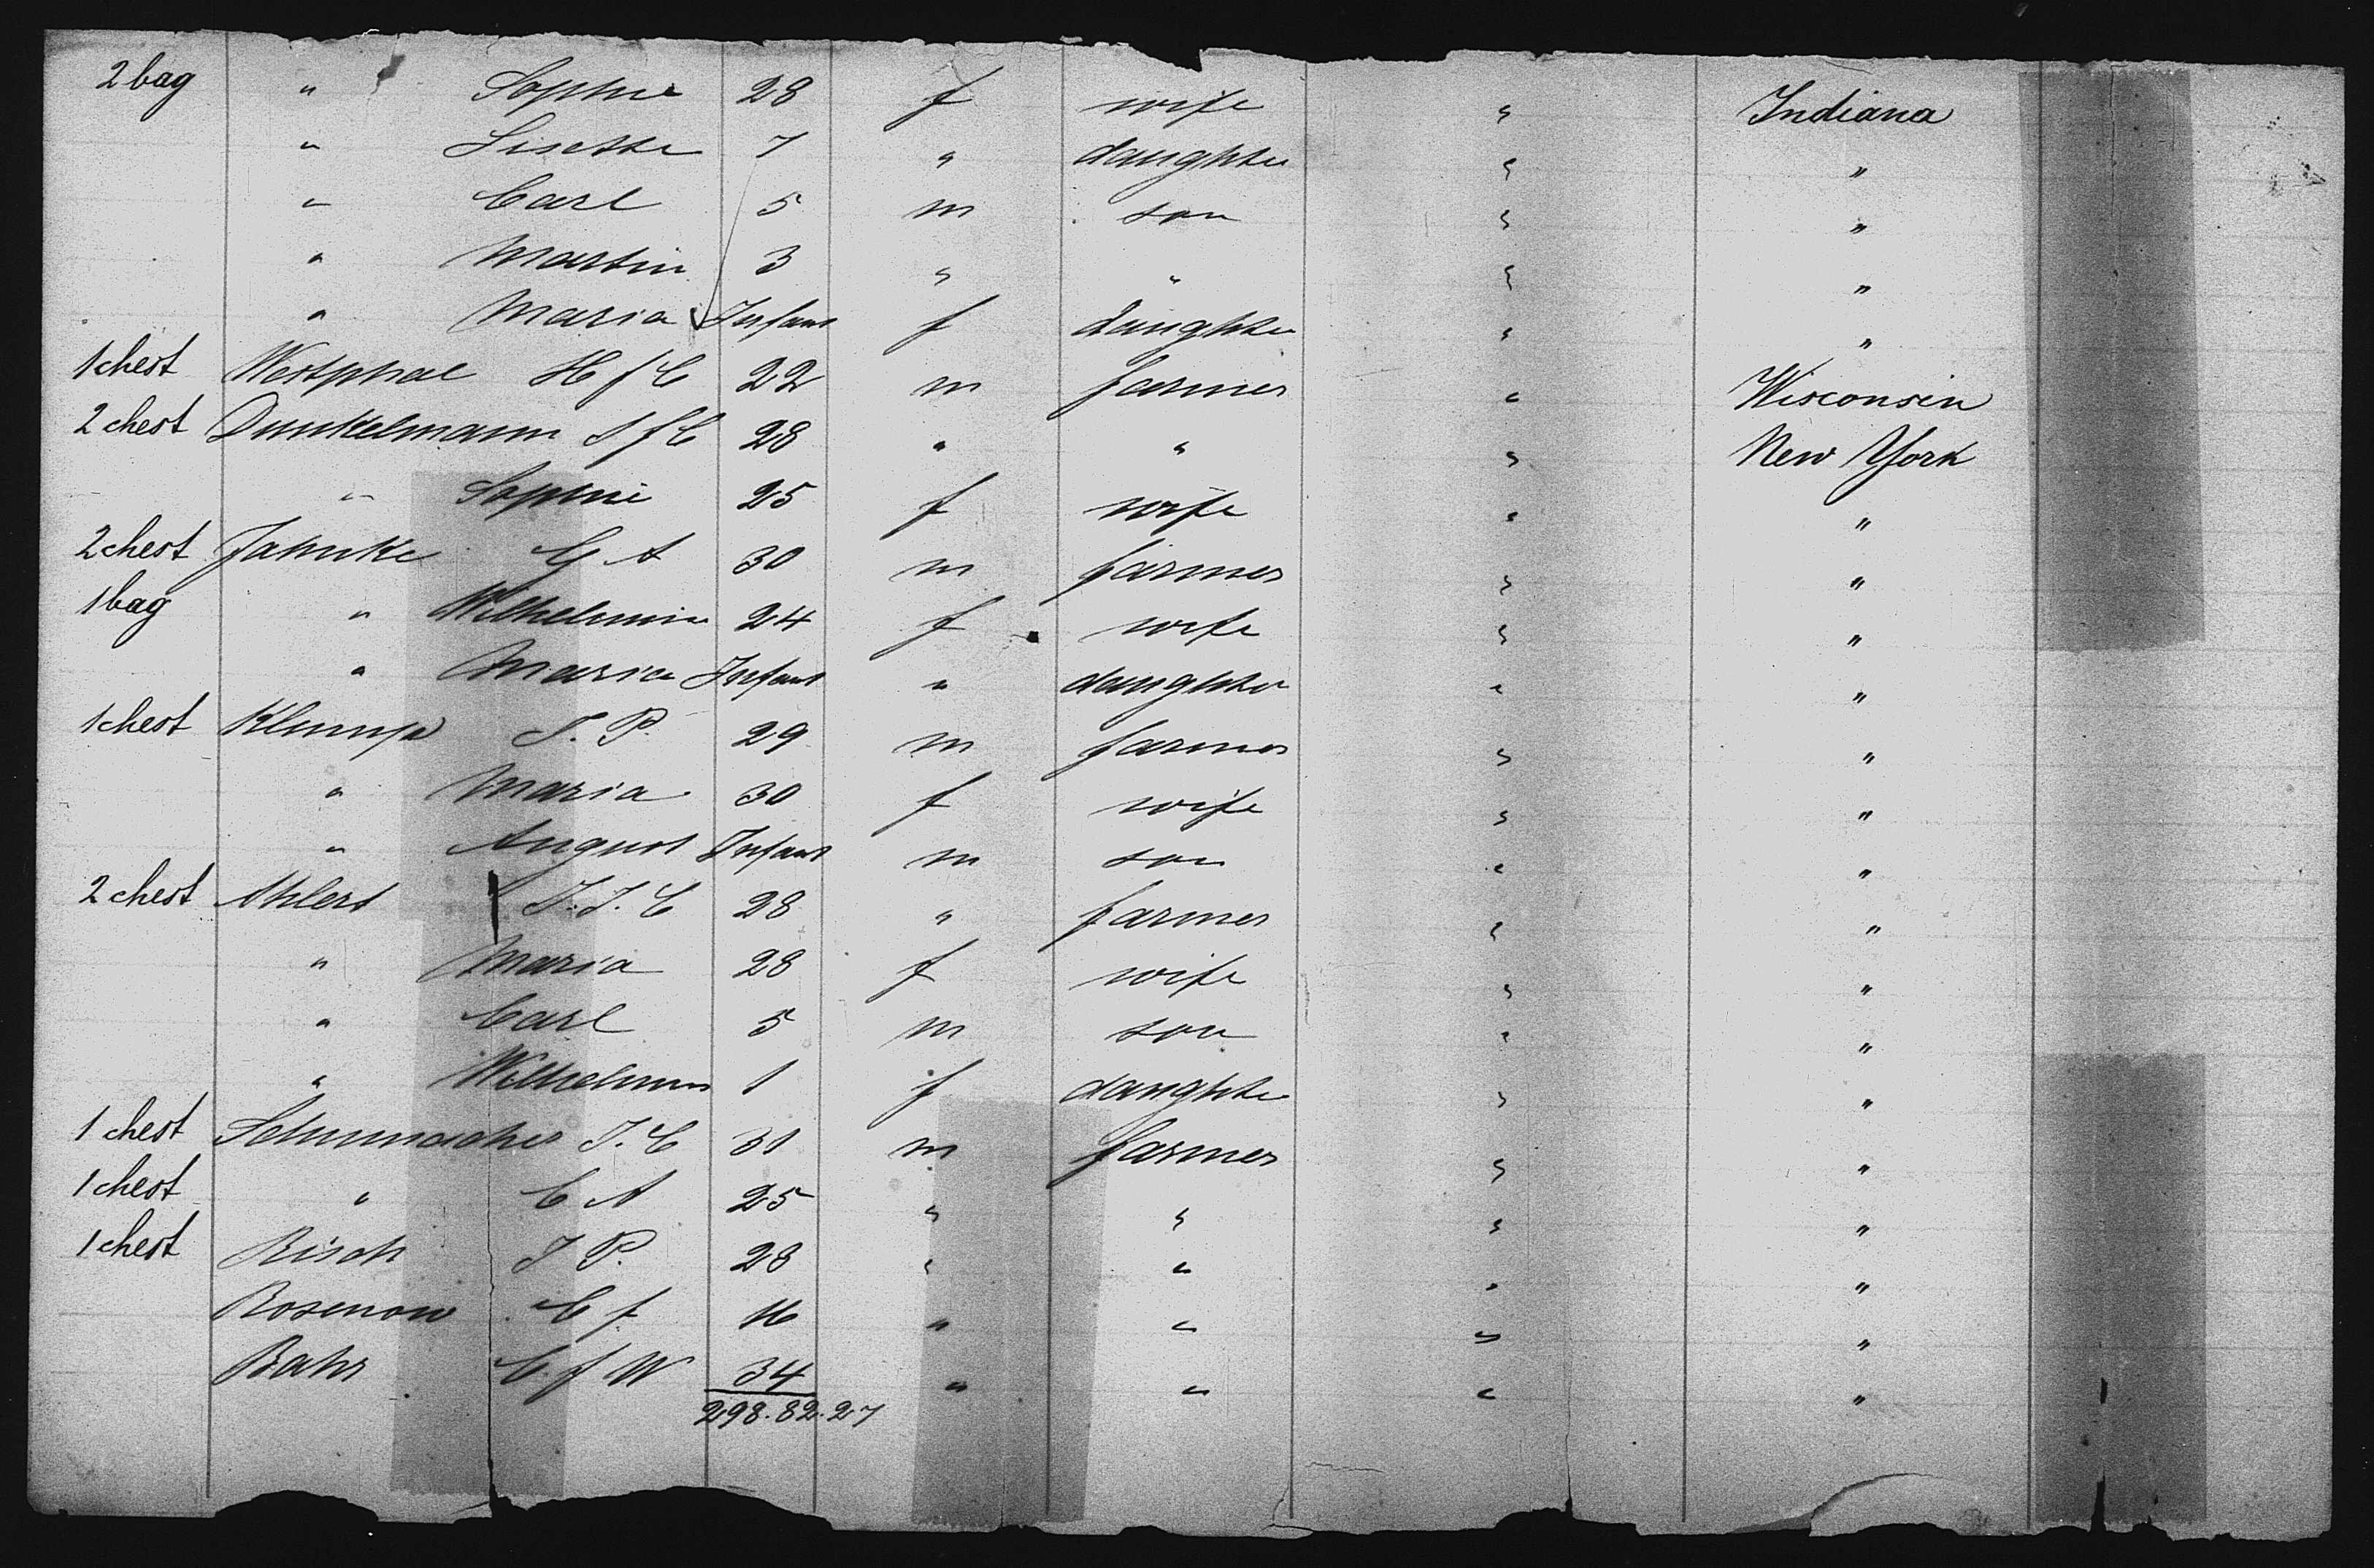 2 bag " Sophie 28 f wife " Indiana
" Lisette 7 " daughter " "
" Carl 5 m son " "
" Martin 3 " " " "
" Maria Infant f daughter " "
1 chest Westphal H f C 22 m farmer " Wisconsin
2 chest Dunkelmann J f C 28 " " " New York
" Sophie 25 f wife " "
2 chest Jahnke G A 30 m farmer " "
1 bag " Wilhelmine 24 f wife " "
" Maria Infant " daughter " "
1 chest Klump J. P. 29 m farmer " "
" Maria 30 f wife " "
" August Infant m son " "
2 chest Ahlert J. J. C 28 " farmer " "
" Maria 28 f wife " "
" Carl 5 m son " "
" Wilhelmine 1 f daughter " "
1 chest Schumacher J. C 31 m farmer " "
1 chest " C A 25 " " " "
1 chest Risch J P. 28 " " " "
Rosenow C f 16 " " " "
Bahr C. f W 34 " " " "
298. 82. 27